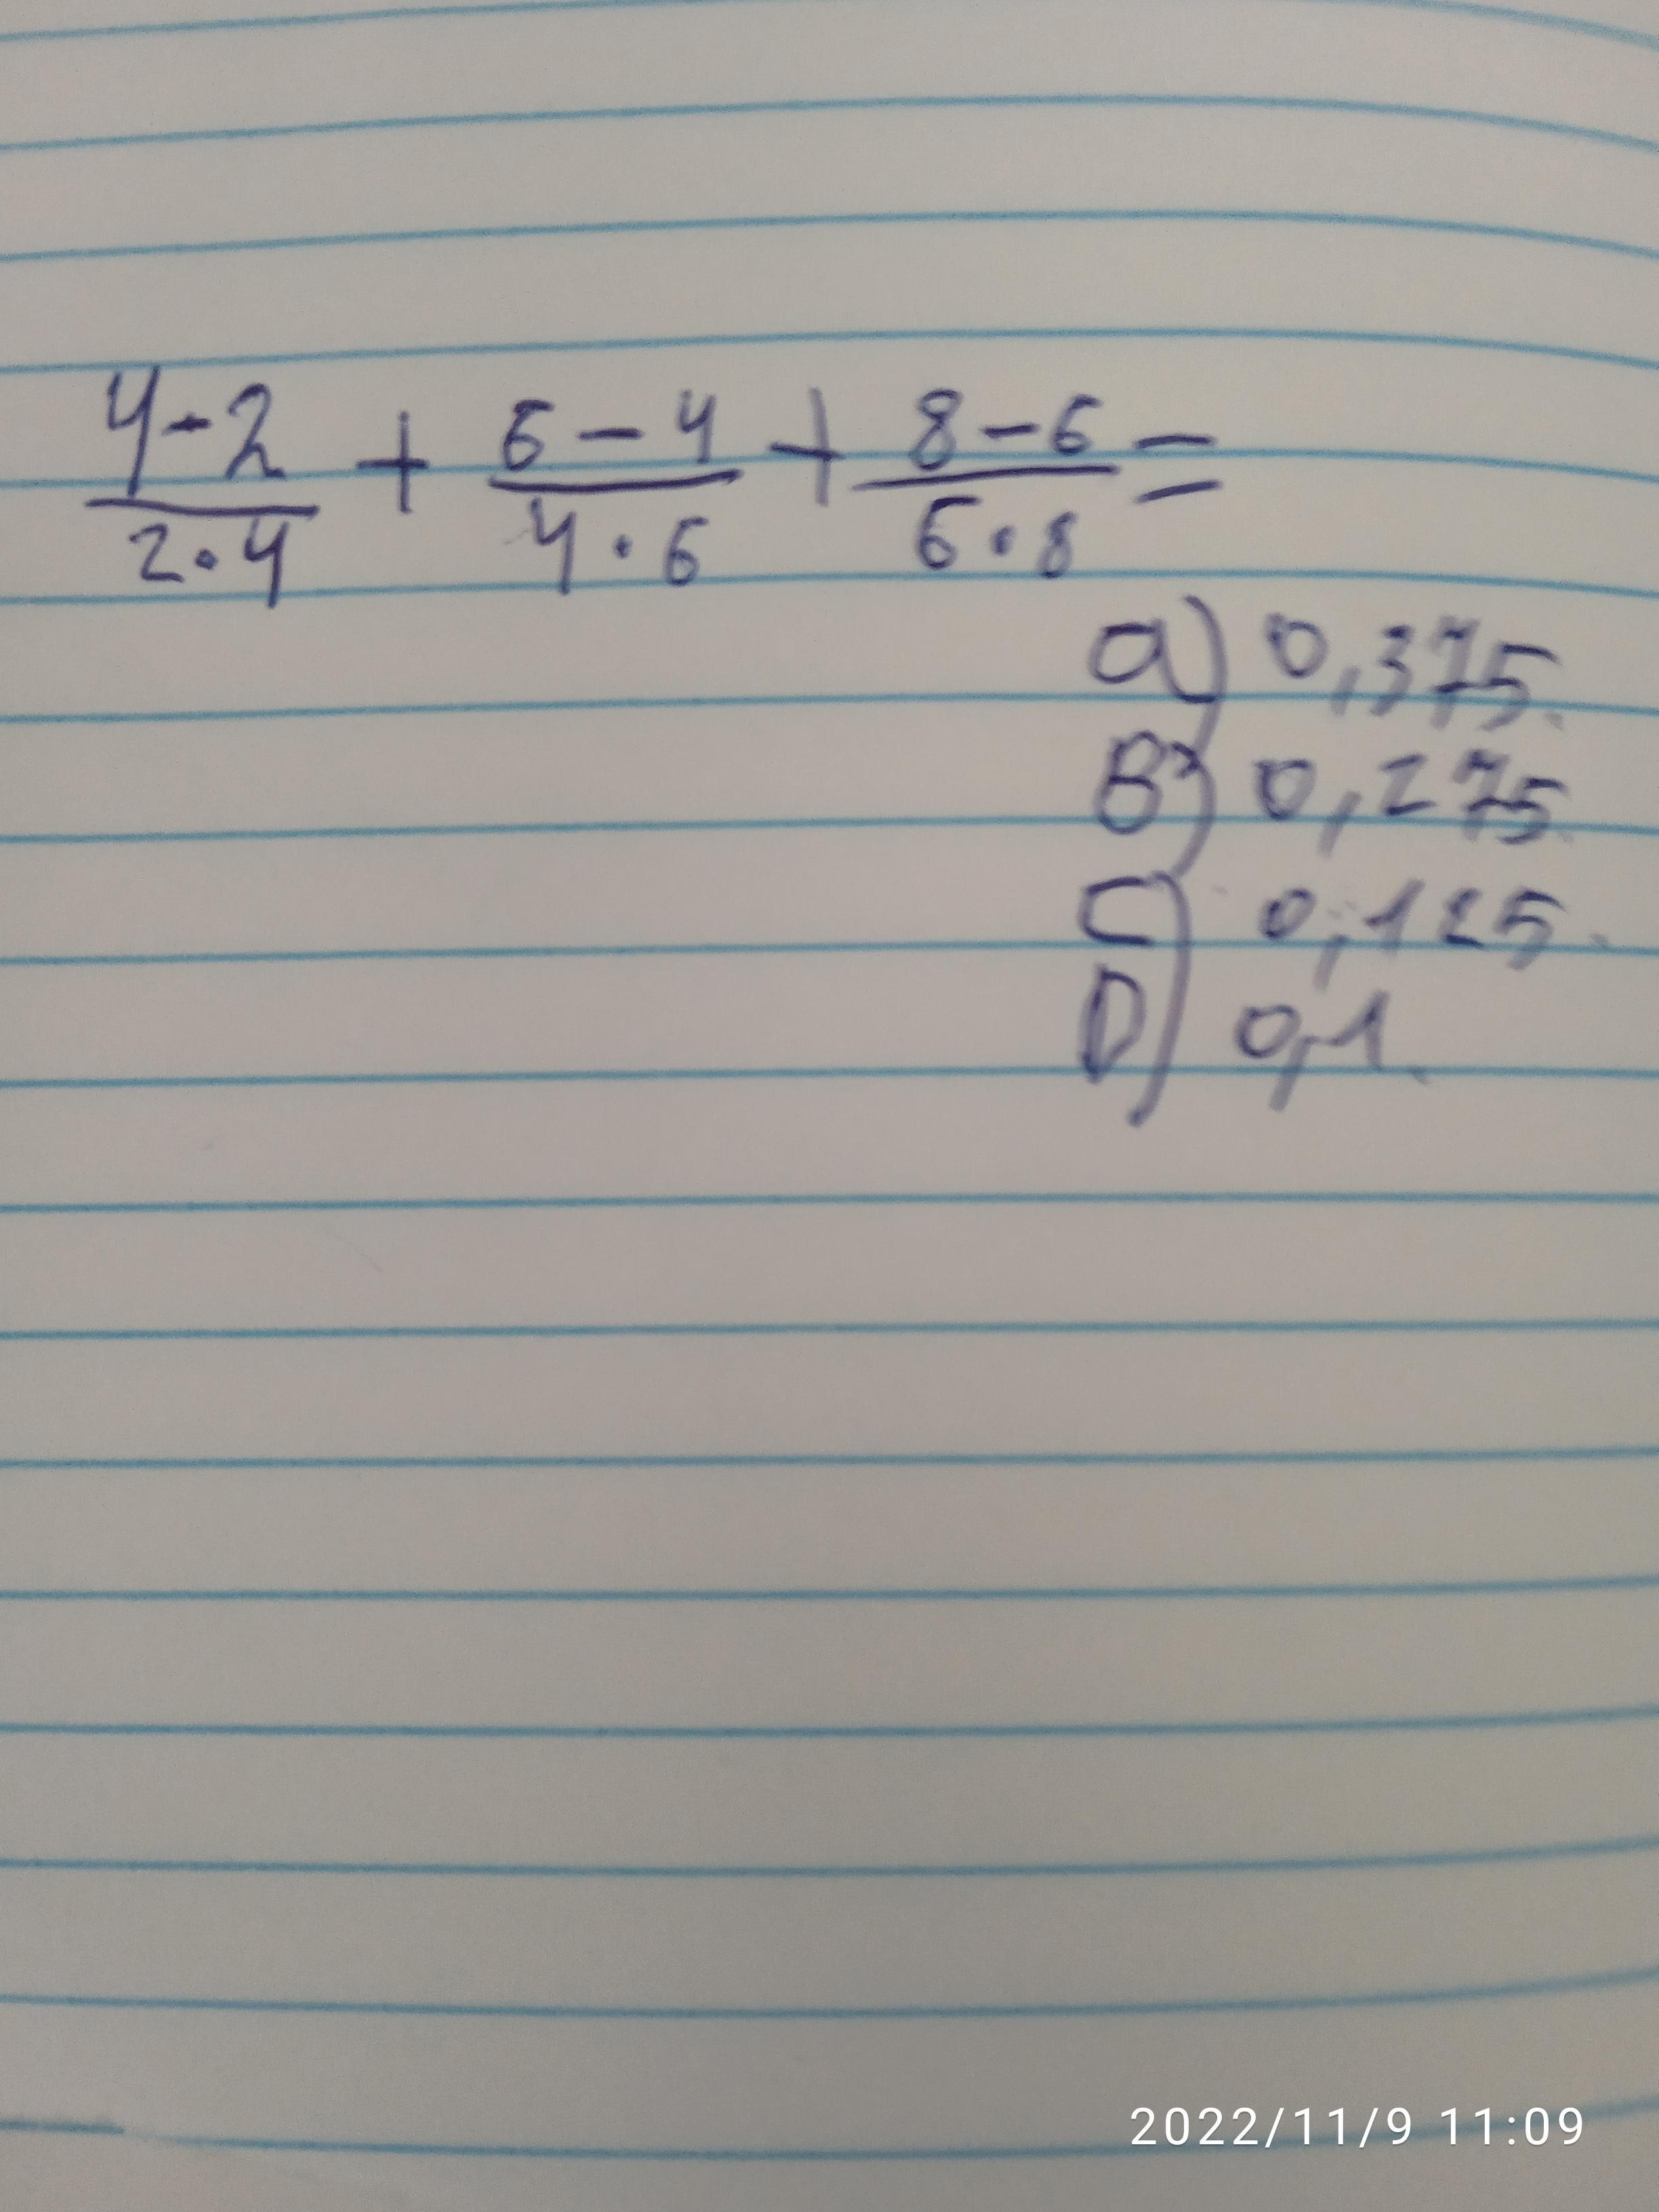 4-2/2·4 + 6-4/4·6 + 8-6/6·8 =
a) 0,375.
B) 0,275.
C) 0,125.
D) 0,1.
2022/11/9 11:09